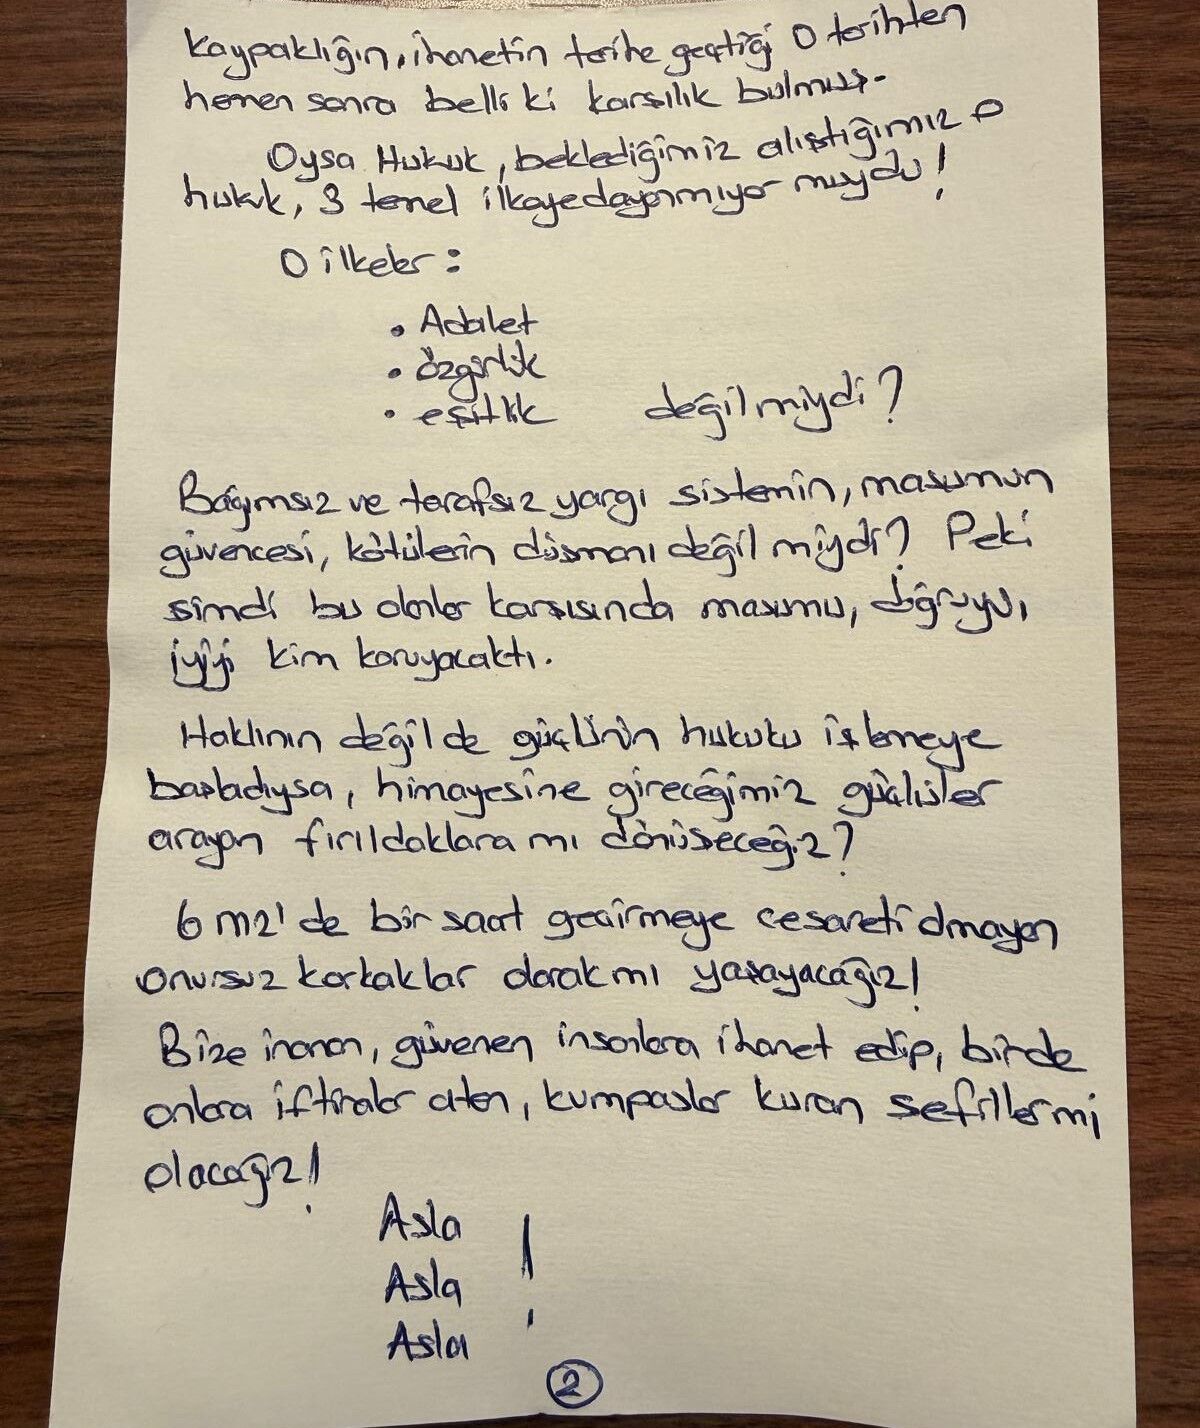 Kaypaklığın, ihanetin tarihe geçtiği O tarihten
hemen sonra belli ki karşılık bulmuş.
Oysa Hukuk, beklediğimiz alıştığımız o
hukuk, 3 temel ilkeye dayanmıyor muydu!
O ilkeler:
• Adalet
• özgürlük
• eşitlik değil miydi?
Bağımsız ve tarafsız yargı sistemin, masumun
güvencesi, kötülerin düşmanı değil miydi? Peki
şimdi bu olanlar karşısında masumu, doğruyu,
iyiyi kim koruyacaktı.
Haklının değil de güçlünün hukuku işlemeye
başladıysa, himayesine gireceğimiz güçlüler
arayan fırıldaklara mı dönüşeceğiz?
6 m2'de bir saat geçirmeye cesareti olmayan
onursuz korkaklar olarak mı yaşayacağız!
Bize inanan, güvenen insanlara ihanet edip, birde
onlara iftiralar atan, kumpaslar kuran sefiller mi
olacağız!
Asla
Asla !
Asla
2